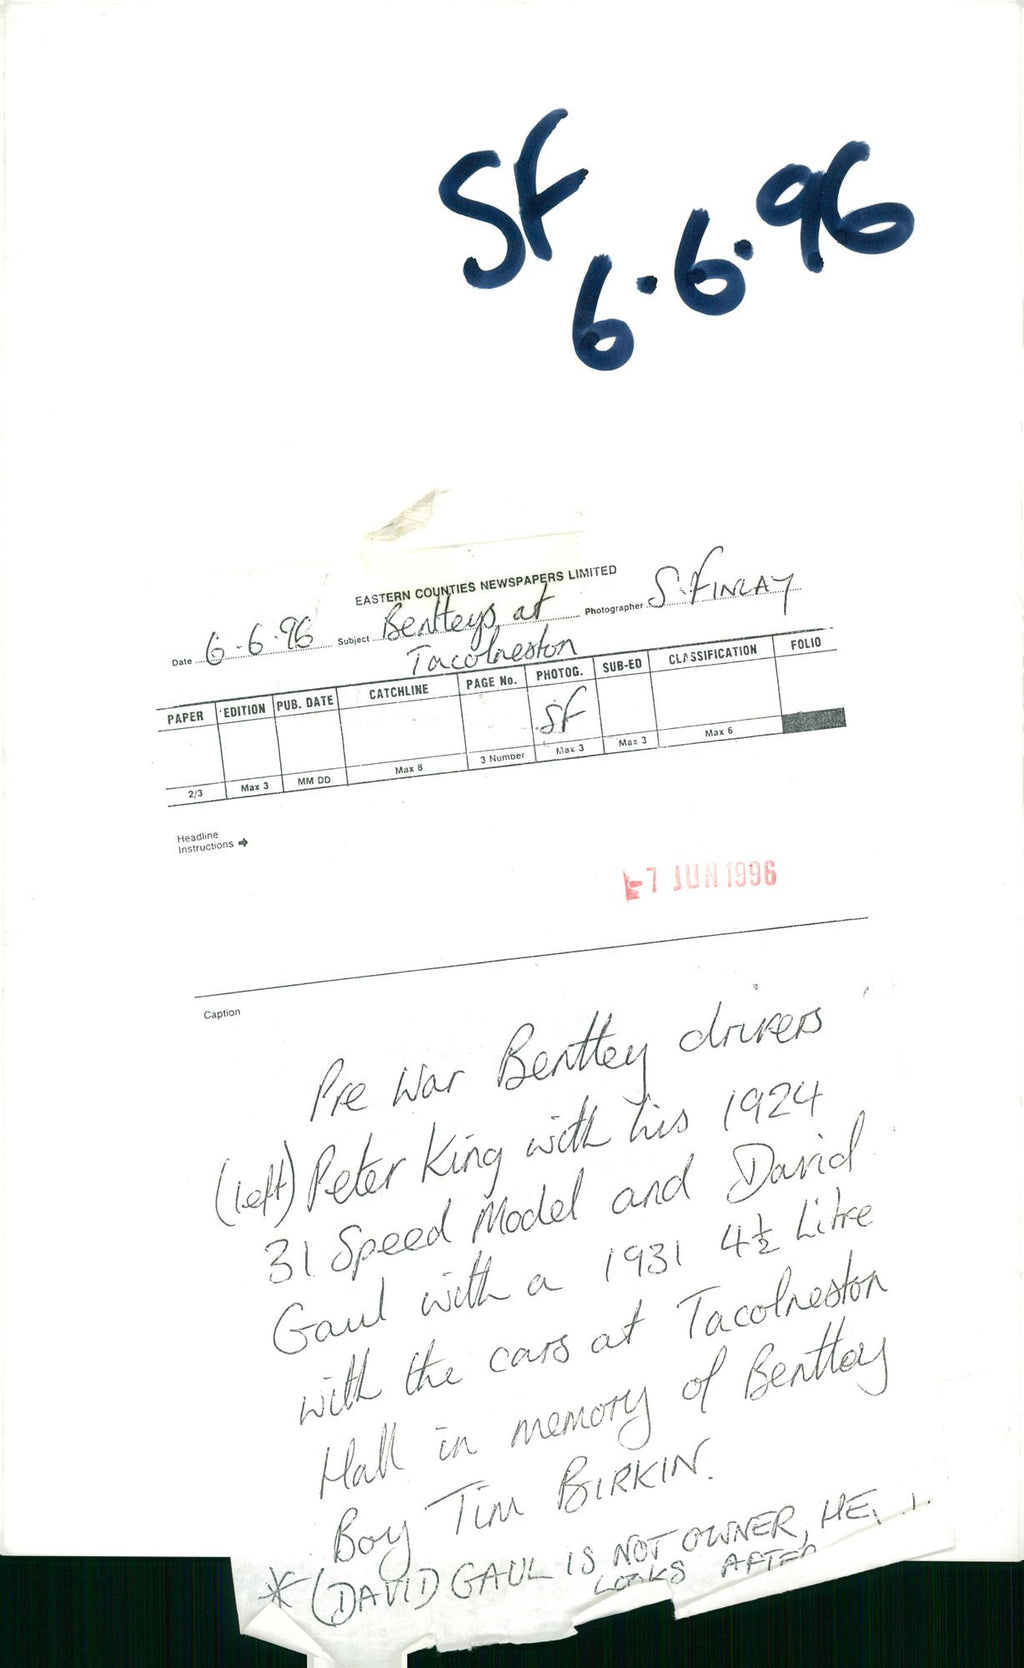 SF
6.6.96
EASTERN COUNTIES NEWSPAPERS LIMITED
Date 6.6.96 Subject Bentleys at Photographer S. FINLAY
Tacolneston
PAPER EDITION PUB. DATE CATCHLINE PAGE No. PHOTOG. SUB-ED CLASSIFICATION FOLIO
SF
2/3 Max 3 MM DD Max 8 3 Number Max 3 Max 3 Max 6
Headline
Instructions
-7 JUN 1996
Caption
Pre War Bentley drivers
(left) Peter King with his 1924
3l Speed Model and David
Gaul with a 1931 4½ Litre
with the cars at Tacolneston
Hall in memory of Bentley
Boy Tim BIRKIN.
* (DAVID GAUL IS NOT OWNER, HE
LOOKS AFTER